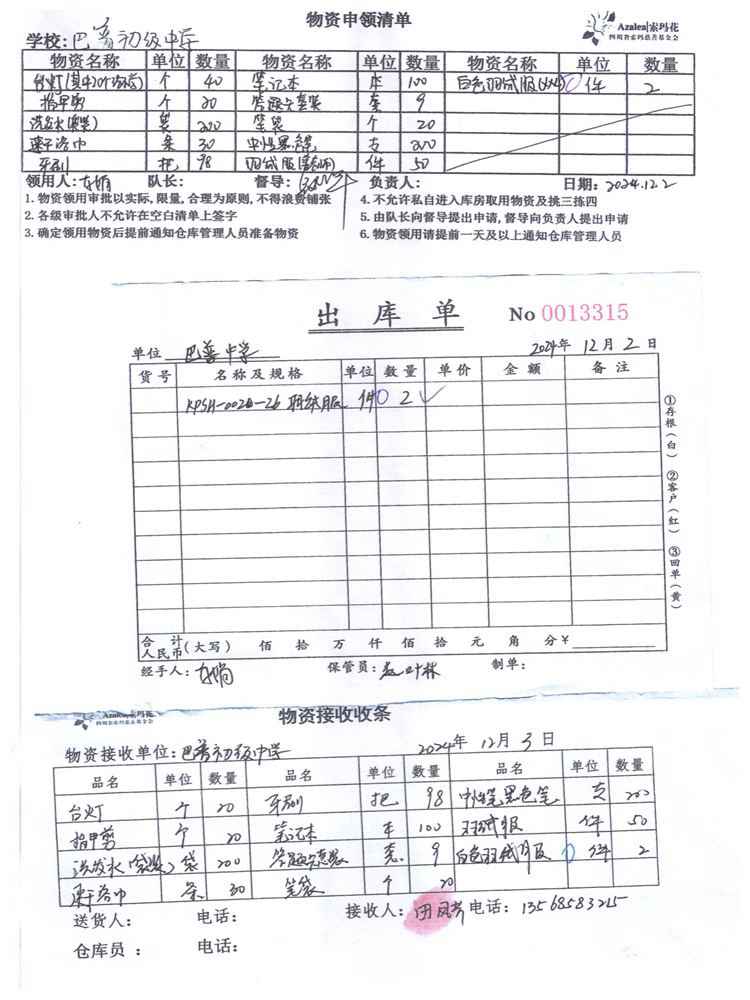 物资申领清单
Azalea|索玛花
四川省索玛慈善基金会
学校: 巴普初级中学
物资名称 单位 数量 物资名称 单位 数量 物资名称 单位 数量
台灯 个 40 笔记本 本 100 白色羽绒服 件 2
指甲剪 个 20 答题卡套装 套 9
洗发水(袋装) 袋 200 笔袋 个 20
干浴巾 条 30 中性黑色笔 支 200
牙刷 把 98 羽绒服 件 50
领用人: 队长: 督导: 负责人: 日期: 2024.12.2
1. 物资领用审批以实际, 限量, 合理为原则, 不得浪费铺张 4. 不允许私自进入库房取用物资及挑三拣四
2. 各级审批人不允许在空白清单上签字 5. 由队长向督导提出申请, 督导向负责人提出申请
3. 确定领用物资后提前通知仓库管理人员准备物资 6. 物资领用请提前一天及以上通知仓库管理人员
出库单 No 0013315
单位 巴普中学 2024年 12月2日
货号 名称及规格 单位 数量 单价 金额 备注
羽绒服 件 2
①存根(白) ②客户(红) ③回单(黄)
合计人民币 (大写) 佰 拾 万 仟 佰 拾 元 角 分 ¥
经手人: 保管员: 制单:
Azalea|索玛花
四川省索玛慈善基金会
物资接收收条
物资接收单位: 巴普初级中学 2024年 12月3日
品名 单位 数量 品名 单位 数量 品名 单位 数量
台灯 个 20 牙刷 把 98 中性笔黑色笔 支 200
指甲剪 个 20 笔记本 本 100 羽绒服 件 50
洗发水(袋装) 袋 200 答题卡套装 套 9 白色羽绒服 件 2
干浴巾 条 30 笔袋 个 20
送货人: 电话: 接收人: 电话: 13568583215
仓库员: 电话: